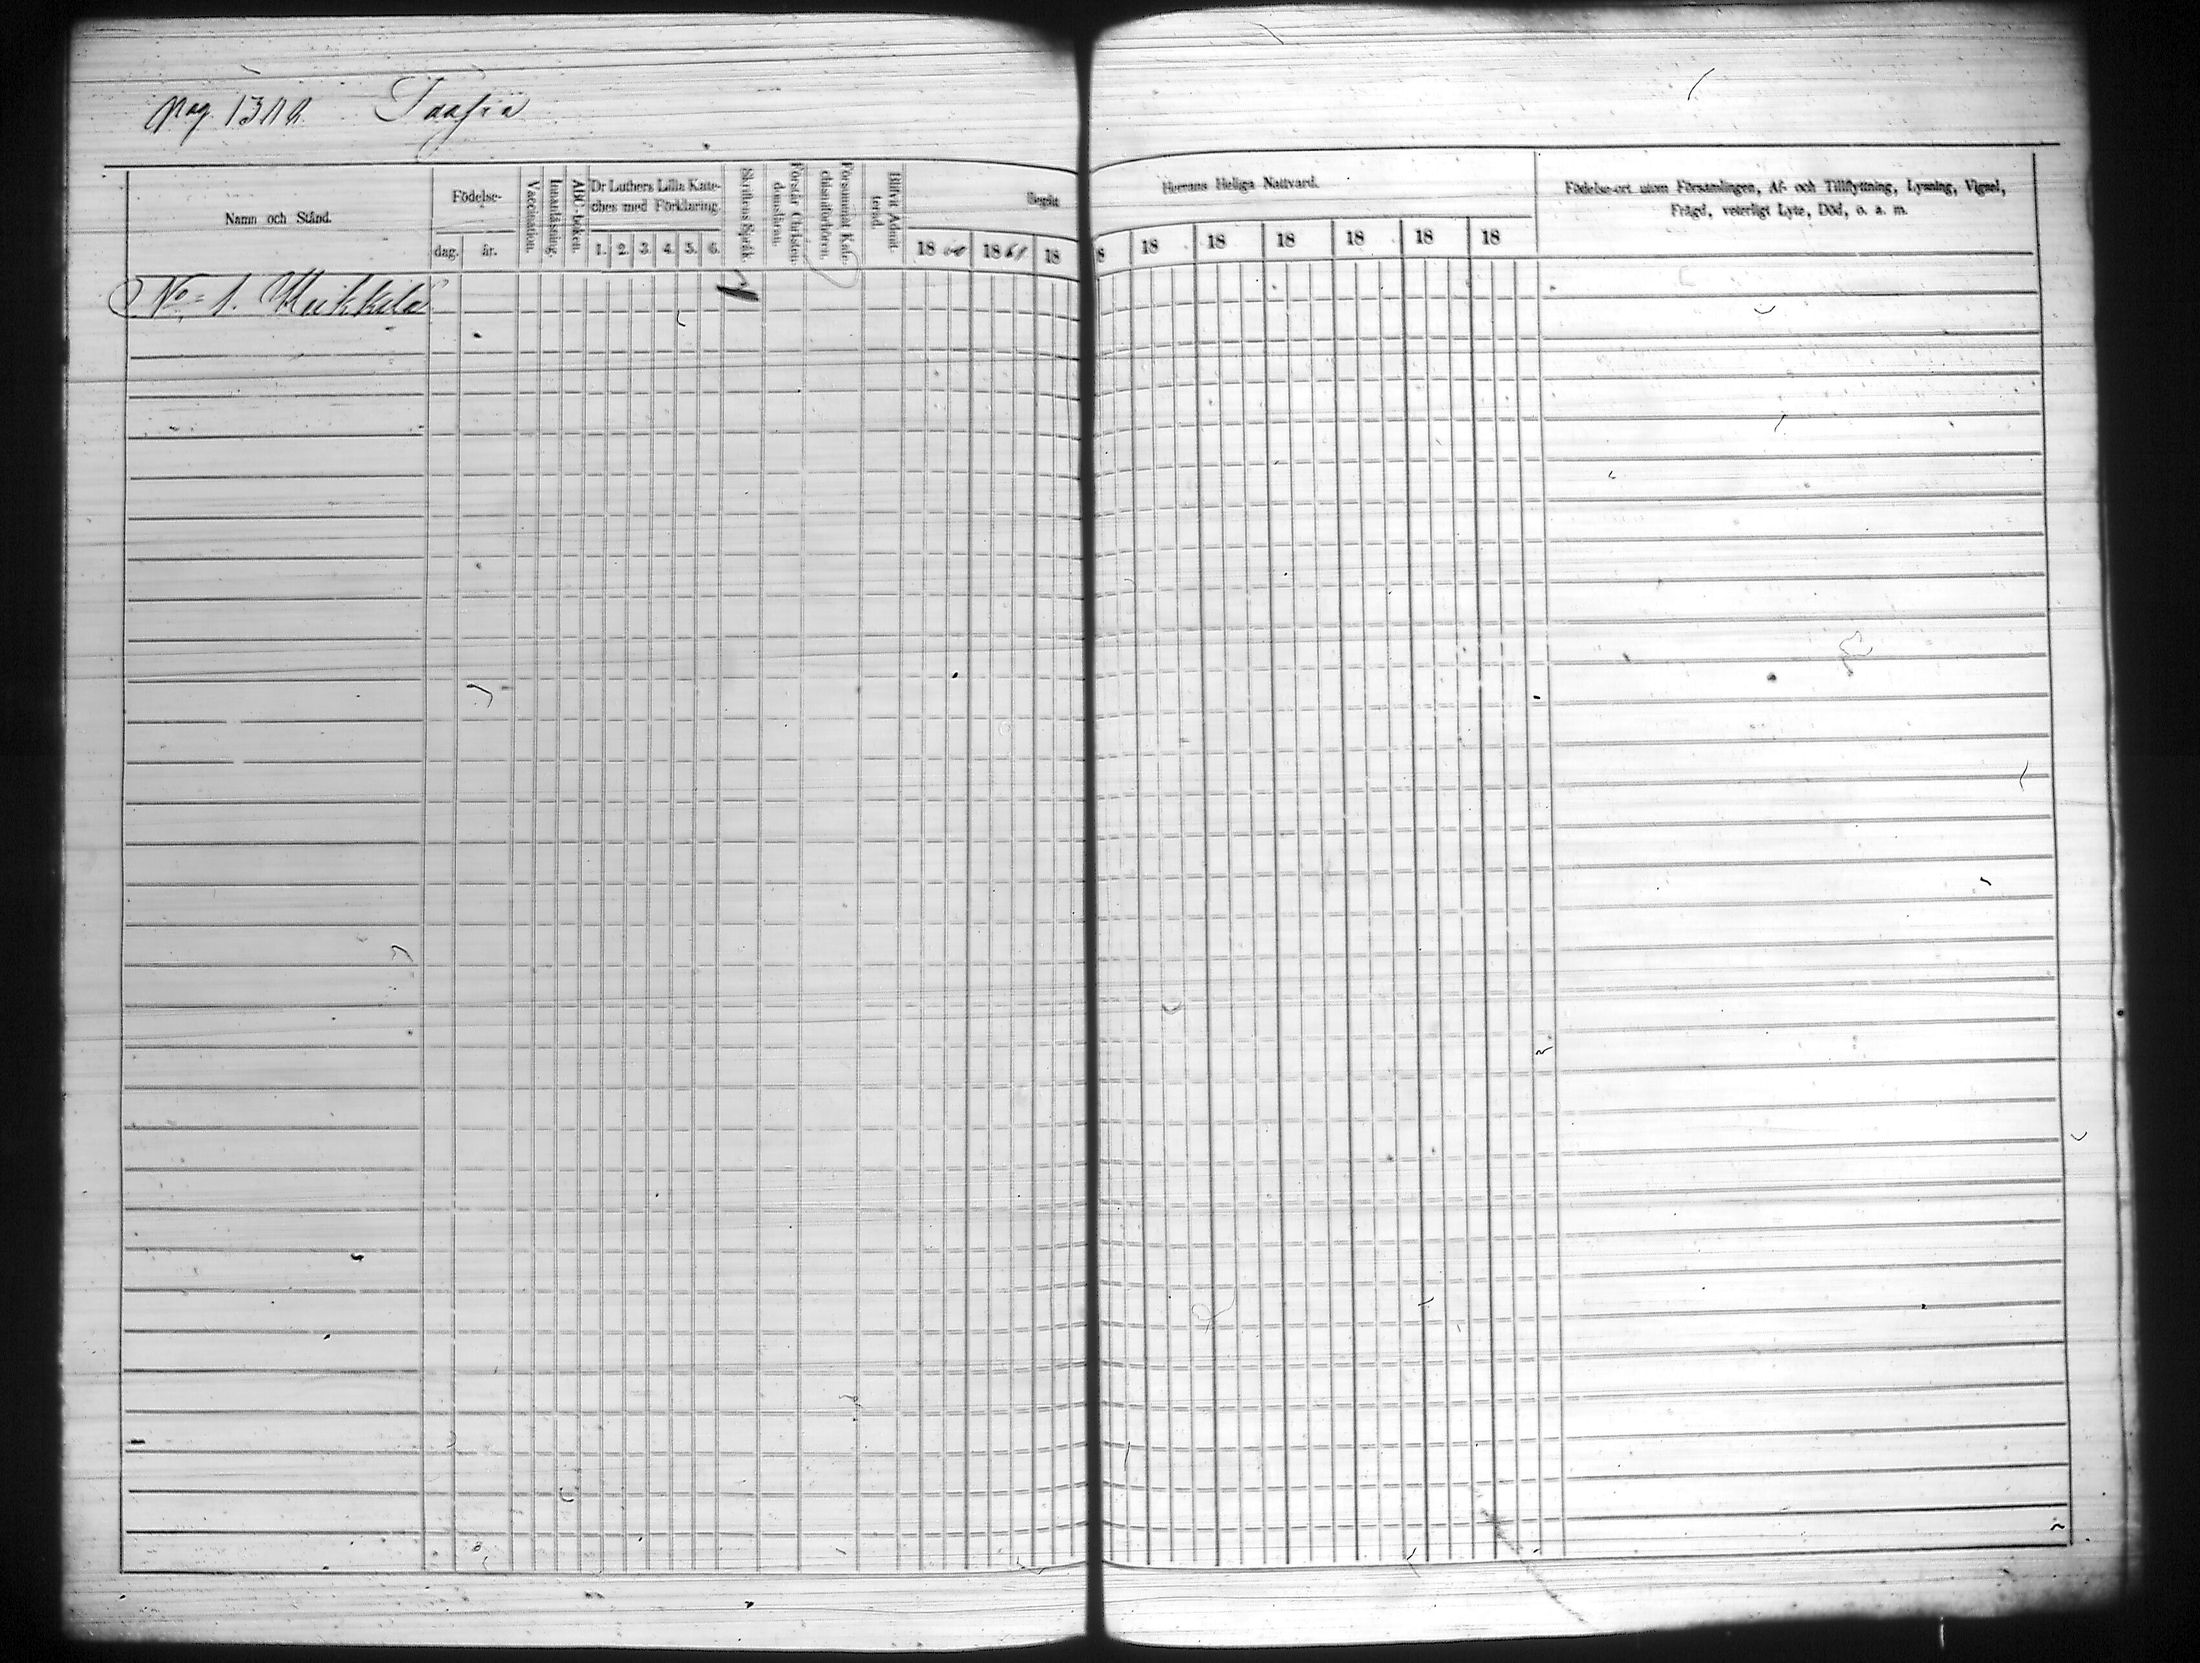 Pag. 1312 Taasia
Namn och Stånd.
Födelse-
dag. år.
Vaccination.
Innanläsning.
ABC-boken.
Dr Luthers Lilla Kate-
ches med Förklaring.
1. 2. 3. 4. 5. 6.
Skriftens Språk.
Förstår Christen-
domsläran.
Försummat Kate-
chismiförhören.
Blifvit Admit-
terad.
Begått
Herrans Heliga Nattvard.
18 60 1861 18
8 18 18 18 18 18 18
Födelse-ort utom Församlingen, Af- och Tillflyttning, Lysning, Vigsel,
Frägd, veterligt Lyte, Död, o. a. m.
No 1. Heikkilä